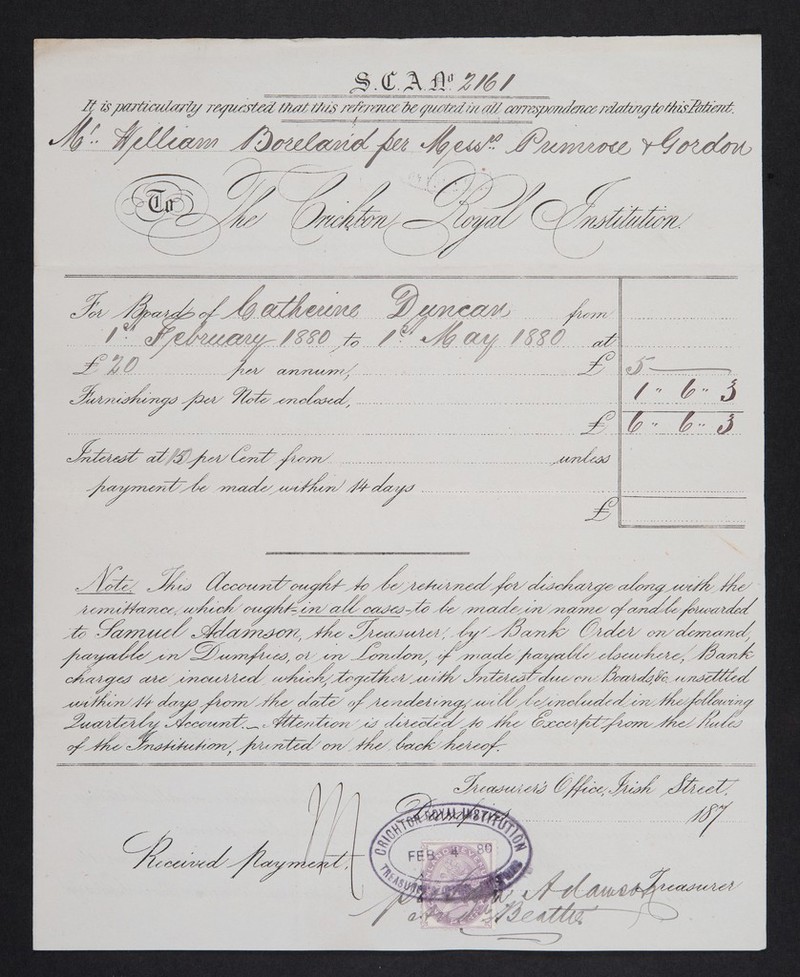 S.C.A. Nº 2161
It is particularly requested that this reference be quoted in all correspondence relating to this Patient.
Mr. William Boreland per Messrs Primrose & Gordon
To The Crichton Royal Institution.
For Board of Catherine Duncan from
1st February 1880 to 1st May 1880 at
£20 per annum, £ 5
Furnishings per Note enclosed, 1 " 6 " 3
£ 6 " 6 " 3
Interest at (5) per Cent from unless
payment be made within 14 days
£
Note, This Account ought to be returned for discharge along with the
remittance, which ought in all cases to be made in name of and be forwarded
to Samuel Adamson, the Treasurer, by Bank Order on demand,
payable in Dumfries, or in London, if made payable elsewhere, Bank
charges are incurred which, together with Interest due on Boards &c. unsettled
within 14 days from the date of rendering, will be included in the following
Quarterly Account. Attention is directed to the Excerpt from the Rules
of the Institution, printed on the back hereof.
Treasurer's Office, Irish Street,
Dumfries
187
CRICHTON ROYAL INSTITUTION
FEB 4 80
TREASURER'S OFFICE
Received Payment,
Adamson Treasurer
Beattie